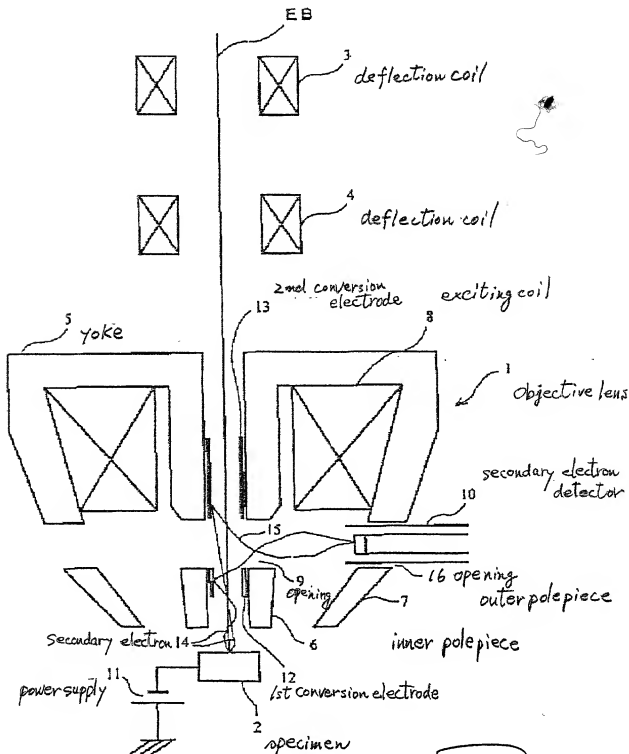 EB
3 deflection coil
4 deflection coil
2nd conversion electrode
13
exciting coil
8
5 yoke
1
Objective lens
secondary electron detector
10
15
9
opening
16 opening
7
outer polepiece
6
inner polepiece
secondary electron 14
12
1st conversion electrode
11
power supply
2
specimen